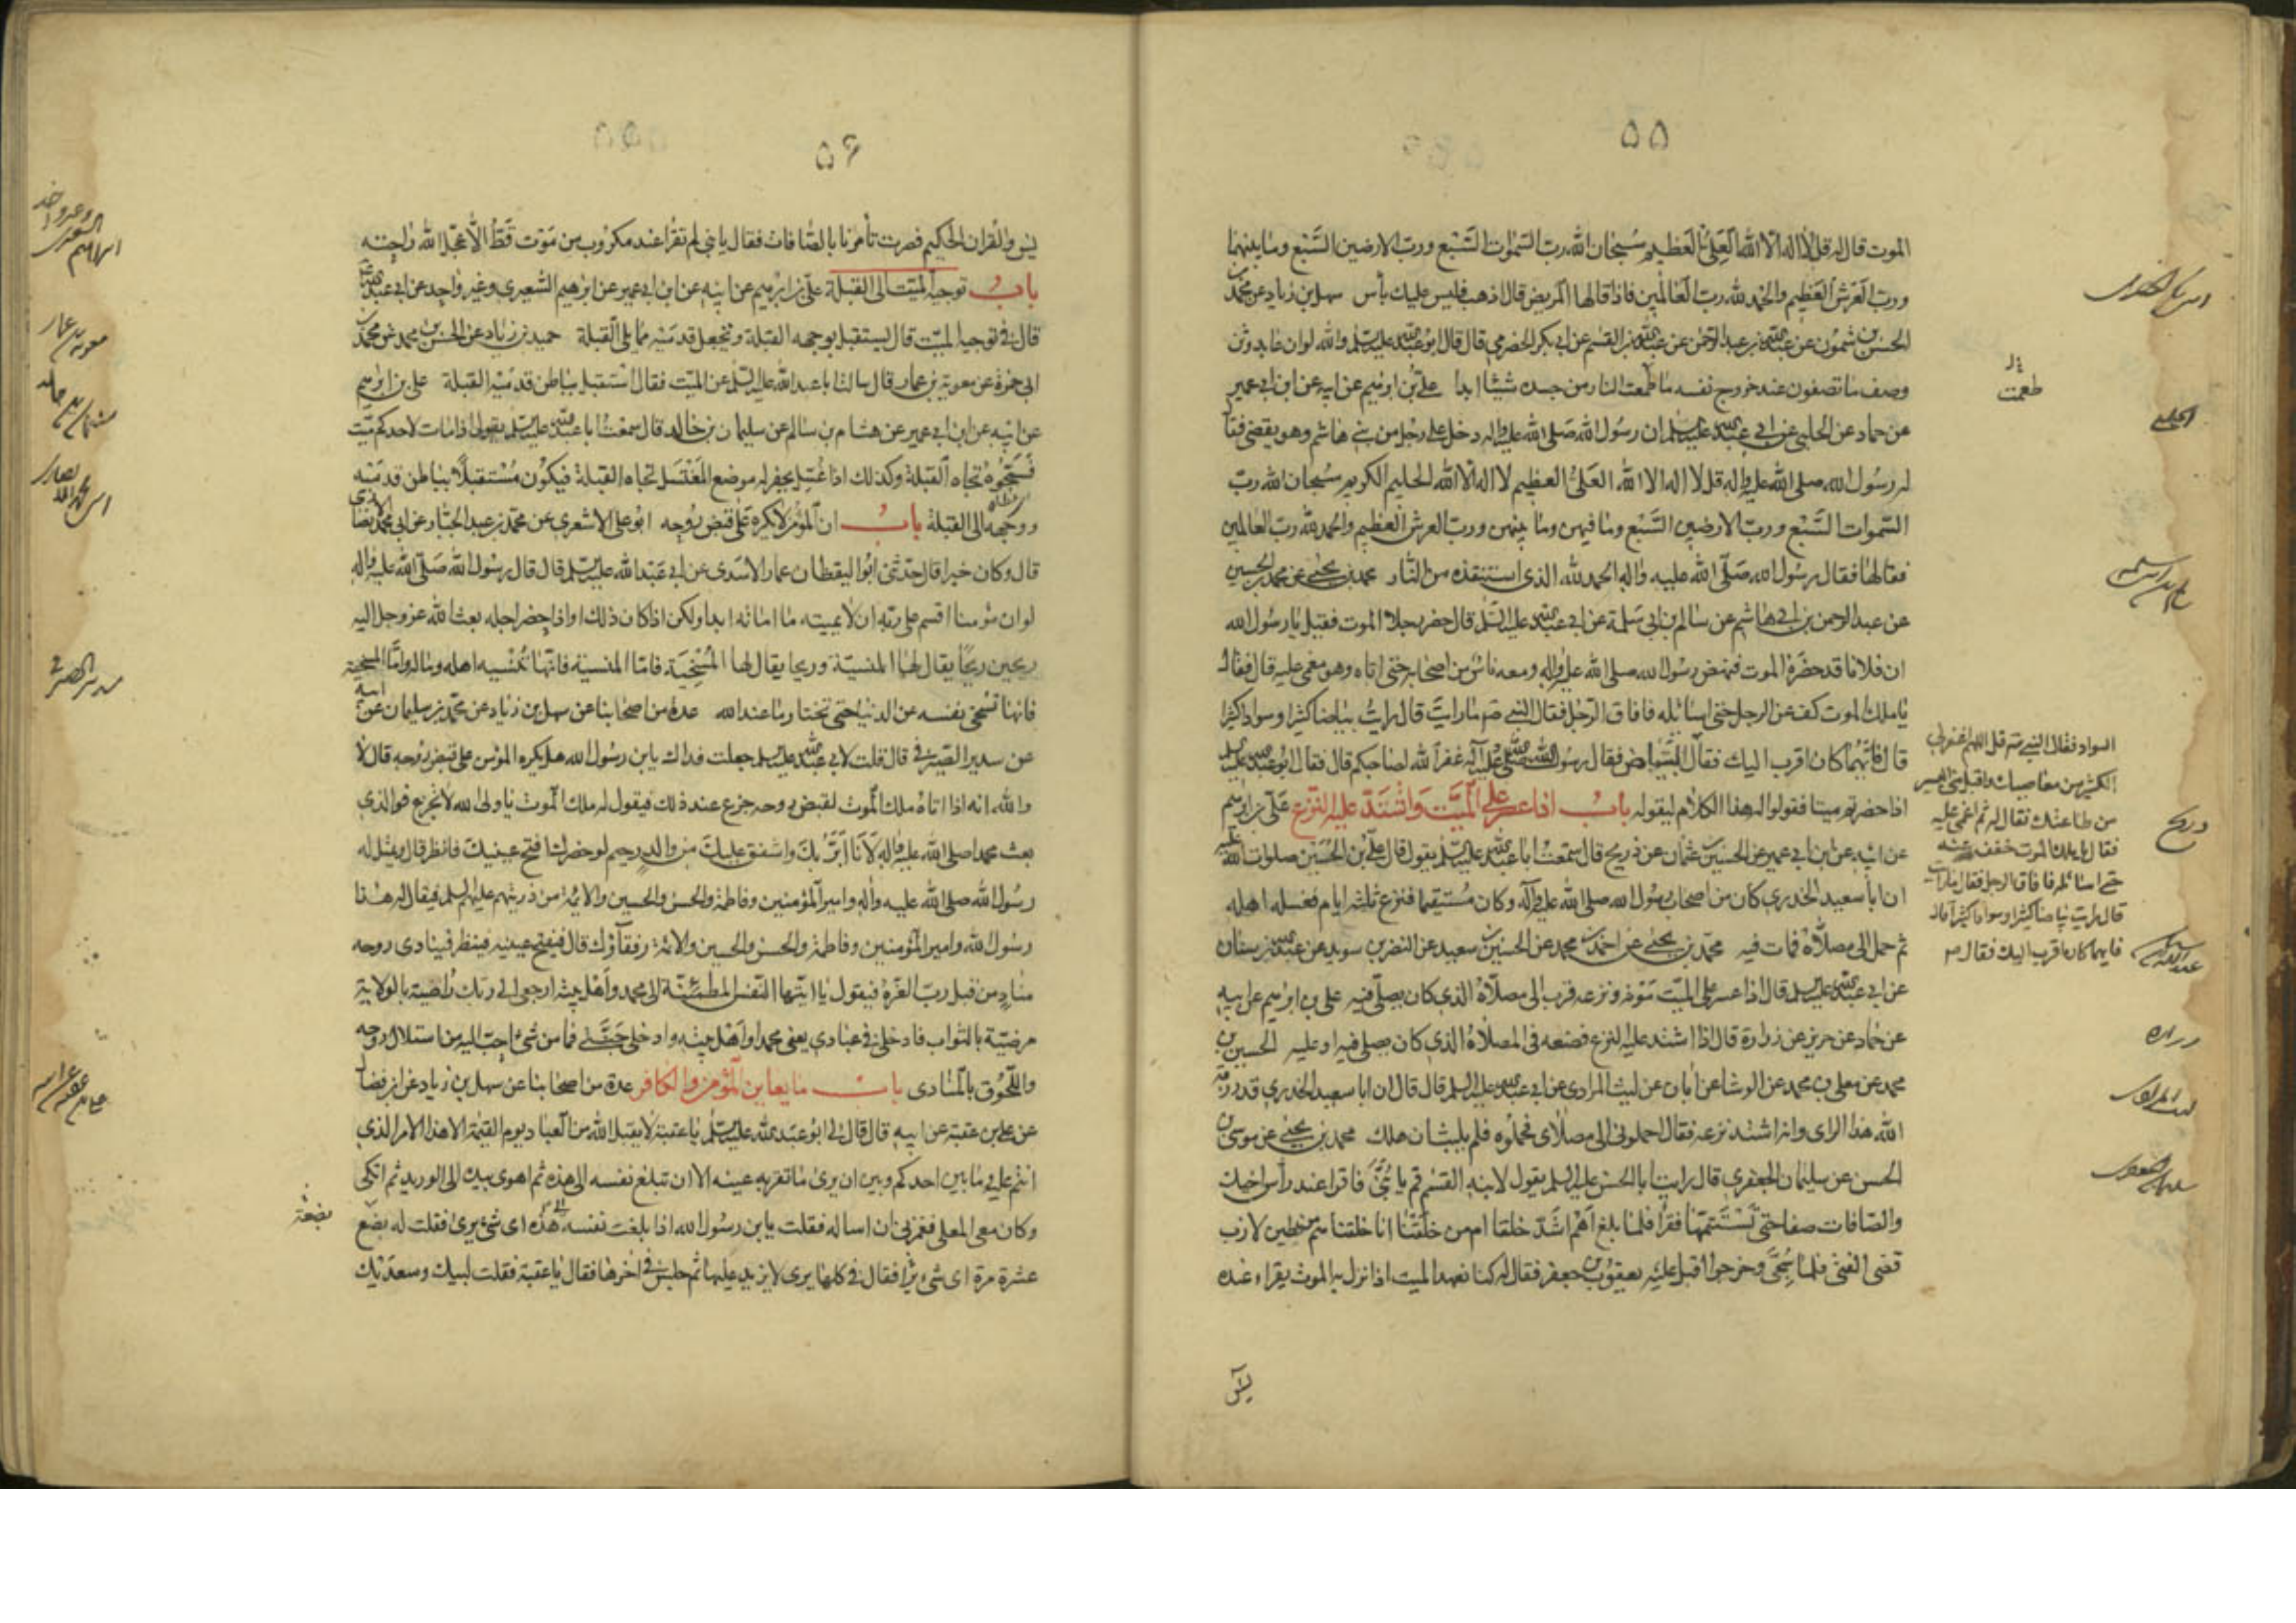 ٥٥
الموت قال له قل لا اله الا الله العلي العظيم سبحان الله رب السموات السبع ورب الارضين السبع وما بينهما
ورب العرش العظيم والحمد لله رب العالمين فاذا قالها المريض قال اذهب فليس عليك بأس سهل بن زياد عن محمد بن
الحسن بن شمون عن عبد الله بن عبد الرحمن عن عبد الله بن القسم عن ابي بكر الحضرمي قال قال ابو عبد الله عليه السلم والله لو ان عابد وثن
وصف ما تصفون عند خروج نفسه ما طعمت النار من جسده شيئا ابدا علي بن ابرهيم عن ابيه عن ابن ابي عمير
عن حماد عن الحلبي عن ابي عبد الله عليه السلم ان رسول الله صلى الله عليه واله دخل على رجل من بني هاشم وهو يقضي فقال
له رسول الله صلى الله عليه واله قل لا اله الا الله العلي العظيم لا اله الا الله الحليم الكريم سبحان الله رب
السموات السبع ورب الارضين السبع وما فيهن وما بينهن ورب العرش العظيم والحمد لله رب العالمين
فقالها فقال رسول الله صلى الله عليه واله الحمد لله الذي استنقذه من النار محمد بن يحيى عن محمد بن الحسين
عن عبد الرحمن بن ابي هاشم عن سالم بن ابي سلمة عن ابي عبد الله عليه السلم قال حضر رجلا الموت فقيل يا رسول الله
ان فلانا قد حضره الموت فنهض رسول الله صلى الله عليه واله ومعه ناس من اصحابه حتى اتاه وهو مغمى عليه قال فقال
يا ملك الموت كف عن الرجل حتى اسائله فافاق الرجل فقال النبي صم ما رايت قال رايت بياضا كثيرا وسوادا كثيرا
قال فايهما كان اقرب اليك فقال البياض فقال رسول الله صلى الله عليه وآله غفر الله لصاحبكم قال فقال ابو عبد الله عليه السلم
اذا حضرتم ميتا فقولوا له هذا الكلام ليقوله باب اذا عسر على الميت واشتد عليه النزع علي بن ابرهيم
عن ابيه عن ابن ابي عمير عن الحسين بن عثمان عن ذريح قال سمعت ابا عبد الله عليه السلم يقول قال علي بن الحسين صلوات الله عليه
ان ابا سعيد الخدري كان من اصحاب رسول الله صلى الله عليه وآله وكان مستقيما فنزع ثلثه ايام فغسله اهله
ثم حمل الى مصلاه فمات فيه محمد بن يحيى عن احمد بن محمد عن الحسين بن سعيد عن النضر بن سويد عن عبد الله بن سنان
عن ابي عبد الله عليه السلم قال اذا عسر على الميت موته ونزعه قرب الى مصلاه الذي كان يصلي فيه علي بن ابرهيم عن ابيه
عن حماد عن حريز عن زرارة قال اذا اشتد عليه النزع فضعه في المصلاه الذي كان يصلي فيه او عليه الحسين بن
محمد عن معلى بن محمد عن الوشا عن ابان عن ليث المرادي عن ابي عبد الله عليه السلم قال قال ان ابا سعيد الخدري قد رزقه
الله هذا الراى وانه اشتد نزعه فقال احملوني الى مصلاي فحملوه فلم يلبث ان هلك محمد بن يحيى عن موسى بن
الحسن عن سليمان الجعفري قال رايت ابا الحسن عليه السلم يقول لابنه القسم قم يا بني فاقرا عند رأس اخيك
والصافات صفا حتى تستتمها فقرا فلما بلغ اهم اشد خلقا ام من خلقنا انا خلقناهم من طين لازب
قضى الفتى فلما سجي وخرجوا اقبل عليه يعقوب بن جعفر فقال له كنا نعهد الميت اذا نزل به الموت يقراء عنده
يس
طعمت
الحلبي
السواد فقال النبي صم قل اللهم اغفر لي
الكثير من معاصيك واقبل مني اليسير
من طاعتك فقال له ثم اغمي عليه
فقال يا ملك الموت خفف عنه
حتى اسائله فافاق الرجل فقال ما رايت
قال رايت بياضا كثيرا وسوادا كثيرا قال
فايهما كان اقرب اليك فقال
ذريح
زراره
ليث المرادي
سليمان الجعفري
٥٦
يس والقران الحكيم فصرت تأمرنا بالصافات فقال يا بني لم تقرا عند مكروب من موت قط الا عجل الله راحته
باب توجيه الميت الى القبلة علي بن ابرهيم عن ابيه عن ابن ابي عمير عن ابرهيم الشعيري وغير واحد عن ابي عبد الله
قال في توجيه الميت قال يستقبل بوجهه القبلة وتجعل قدميه مما يلي القبلة حميد بن زياد عن الحسن بن محمد عن محمد بن
ابي حمزة عن معوية بن عمار قال سالت ابا عبد الله عليه السلم عن الميت فقال استقبل بباطن قدميه القبلة علي بن ابرهيم
عن ابيه عن ابن ابي عمير عن هشام بن سالم عن سليمان بن خالد قال سمعت ابا عبد الله عليه السلم يقول اذا مات لاحدكم ميت
فسجوه تجاه القبلة وكذلك اذا غسل يحفر له موضع المغتسل تجاه القبلة فيكون مستقبلا بباطن قدميه
ووجهه الى القبلة باب ان المؤمن لا يكره على قبض روحه ابو علي الاشعري عن محمد بن عبد الجبار عن ابي محمد الانصاري
قال وكان خيرا قال حدثني ابو اليقظان عمار الاسدي عن ابي عبد الله عليه السلم قال قال رسول الله صلى الله عليه واله
لو ان مؤمنا اقسم على ربه ان لا يميته ما اماته ابدا ولكن اذا كان ذلك او اذا حضر اجله بعث الله عز وجل اليه
ريحين ريحا يقال لها المنسية وريحا يقال لها المسخية فاما المنسية فانها تنسيه اهله وماله واما المسخية
فانها تسخي نفسه عن الدنيا حتى تختار ما عند الله عدة من اصحابنا عن سهل بن زياد عن محمد بن سليمان عن ابيه
عن سدير الصيرفي قال قلت لابي عبد الله عليه السلم جعلت فداك يا بن رسول الله هل يكره المؤمن على قبض روحه قال لا
والله انه اذا اتاه ملك الموت لقبض روحه جزع عند ذلك فيقول له ملك الموت يا ولي الله لا تجزع فوالذي
بعث محمدا صلى الله عليه واله لانا ابر بك واشفق عليك من والد رحيم لو حضرك افتح عينيك فانظر قال ويمثل له
رسول الله صلى الله عليه واله وامير المؤمنين وفاطمة والحسن والحسين والايمة من ذريتهم عليهم السلم فيقال له هذا
رسول الله وامير المؤمنين وفاطمة والحسن والحسين والائمة رفقاؤك قال فيفتح عينيه فينظر فينادي روحه
مناد من قبل رب العزة فيقول يا ايتها النفس المطمئنة الى محمد واهل بيته ارجعي الى ربك راضية بالولاية
مرضية بالثواب فادخلي في عبادي يعني محمدا واهل بيته وادخلي جنتي فما من شئ احب اليه من استلال روحه
واللحوق بالمنادي باب ما يعاين المؤمن والكافر عدة من اصحابنا عن سهل بن زياد عن ابن فضال
عن علي بن عقبة عن ابيه قال قال لي ابو عبد الله عليه السلم يا عقبة لا يقبل الله من العباد يوم القيمة الا هذا الامر الذي
انتم عليه وما بين احدكم وبين ان يرى ما تقر به عينه الا ان تبلغ نفسه الى هذه ثم اهوى بيده الى الوريد ثم اتكى
وكان معي المعلى فغمزني ان اساله فقلت يا بن رسول الله اذا بلغت نفسه هذه اى شئ يرى فقلت له بضع
عشرة مرة اى شئ يرى فقال في كلها يرى لا يزيد عليها ثم جلس في اخرها فقال يا عقبة فقلت لبيك وسعديك
معوية بن عمار
سليمان بن خالد
سدير الصيرفي
بضعة